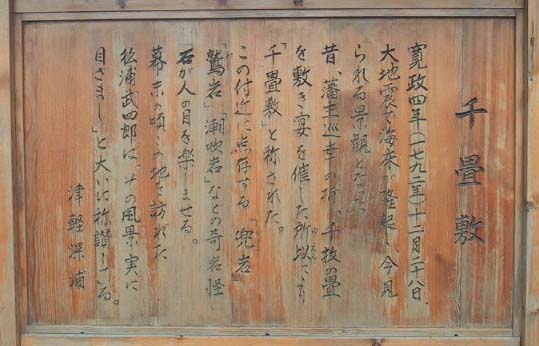 千畳敷
寛政四年(一七九二年)十二月二十八日、
大地震で海床が隆起し、今見
られる景観となった
昔、藩主巡幸の折、千枚の畳
を敷き宴を催した所以により
「千畳敷」と称された。
この付近に点存する「兜岩」
「鷲岩」「潮吹岩」などの奇岩怪
石が人の目を楽しませる。
幕末の頃この地を訪れた
松浦武四郎は、その風景実に
目ざまし」と大いに称讃している。
津軽深浦